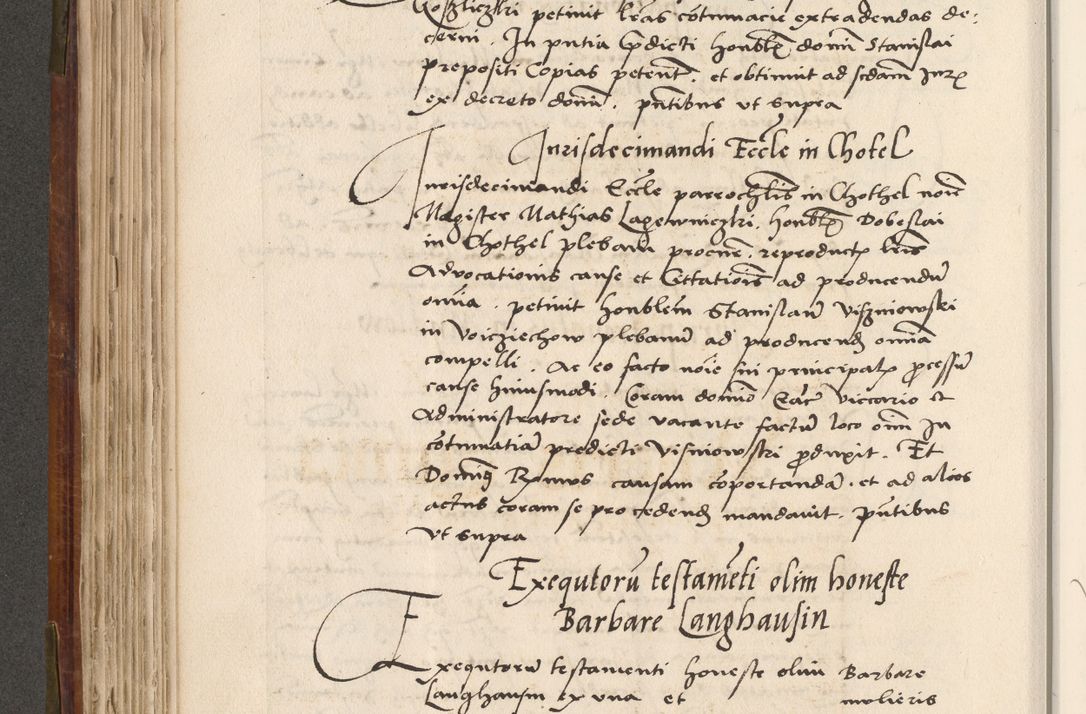 Kosliczkri petiuit lras cotumacie extradendas de-
cerni. In pntia Gpdicti honble domi Stanislai
prepositi Copias petent. et obtinuit ad scdam Jurx
ex decreto domi. pntibus vt supra
Jurisdecimandi Eccle in Chotel
Jurisdecimandi Eccle parrochlis in Chothel noie
Magister Mathias Lagewniczkri. honble Dobeslai
in Chothel plebani procne. reproductx lris
Advocationis cause et Citatiois ad producendu
omia. petiuit honblem Stanislau Viszniowski
in Voicziechow plebanu ad producend omia
compelli. Ac eo facto noie sui principalx pcessu
cause huiusmodi. Coram domio Cac Viccario et
Administratore sede vacante factu loco oim In
cotumatia predicti Visniowski pduxit. Et
Domins Rmus causam coportanda. et ad alios
actus coram se procedend mandauit. pntibus
vt supra
Exequtoru testameti olim honeste
Barbare Langhausin
Exequtoru testamenti honeste olim Barbare
Langhausin ex vna et mulieris